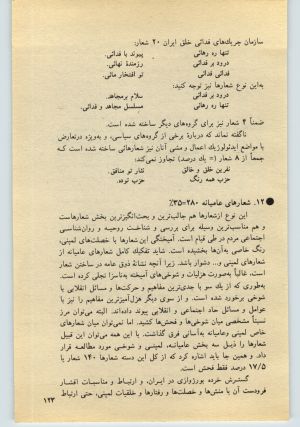 سازمان چریک‌های فدائی خلق ایران ۲۰ شعار:
تنها ره رهائی پیوند با فدائی.
درود بر فدائی رزمندهٔ نهائی.
فدائی فدائی تو افتخار مائی.
به‌این نوع شعارها نیز توجه کنید:
درود بر فدائی سلام بر مجاهد.
تنها ره رهائی مسلسل مجاهد و فدائی.
ضمناً ۴ شعار نیز برای گروه‌های دیگر ساخته شده است.
ناگفته نماند که دربارهٔ برخی از گروه‌های سیاسی، و به‌ویژه درتعارض
با مواضع ایدئولوژیک اعمال و مشی آنان نیز شعارهائی ساخته شده است که
جمعاً از ۸ شعار (= یک درصد) تجاوز نمی‌کند؛
نفرین خلق و خالق نثار تو منافق.
حزب همه رنگ حزب توده.
● ۱۲. شعارهای عامیانه ۲۸۰=۳۵٪
این نوع ازشعارها هم جالب‌ترین و بحث‌انگیزترین بخش شعارهاست
و هم مناسب‌ترین وسیله برای بررسی و شناخت روحیه و روان‌شناسی
اجتماعی مردم در طی قیام است. آمیختگی این شعارها با خصلت‌های لمپنی،
رنگ خاصی به‌آن‌ها بخشیده است. شاید تفکیک کامل شعارهای عامیانه از
شعارهای لمپنی و... دشوار باشد. زیرا آنجه نشانهٔ ذوق عامه در ساختن شعار
است. غالباً به‌صورت هزلیات و شوخی‌های آمیخته به‌ناسزا تجلی کرده است.
به‌طوری که از یک سو با جدی‌ترین مفاهیم و حرکت‌ها و مسائل انقلابی با
شوخی برخورد شده است. و از سوی دیگر هزل‌آمیزترین مفاهیم را نیز با
عوامل و مسائل حاد اجتماعی و انقلابی پیوند داده‌اند. البته می‌توان مرز
نسبتاً مشخصی میان شوخی‌ها و فحش‌ها کشید. اما نمی‌توان میان شعارهای
خاص لمپنی وعامیانه به‌آسانی فرق گذاشت. با این همه می‌توان این قبیل
شعارها را ذیل سه بخش عامیانه، لمپنی و شوخی مورد مطالعه قرار
داد. و همین جا باید اشاره کرد که از کل این دسته شعارها ۱۴۰ شعار یا
۱۷/۵ درصد فقط فحش است.
گسترش خرده بورژوازی در ایران، و ارتباط و مناسبات اقشار
فرودست آن با منش‌ها و خصلت‌ها و رفتارها و خلقیات لمپنی، حتی ارتباط
۱۲۳